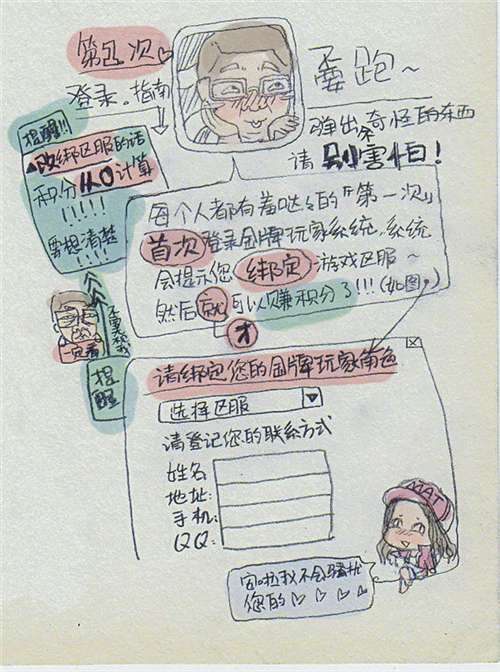 第1次
登录。指南
要跑~
弹出个奇怪的东西
请别害怕!
提醒!!!
▲改绑区服的话
积分从0计算
!!!!!
要想清楚
!!!!
一定看
提醒
每个人都有羞哒々的“第一次”
首次登录金牌玩家系统,系统
会提示您绑定游戏区服~
然后就可以赚积分了!!!(如图。)
才
请绑定您的金牌玩家角色
选择区服
请登记您的联系方式
姓名:
地址:
手机:
QQ:
MAT
安啦我不会骚扰
您的